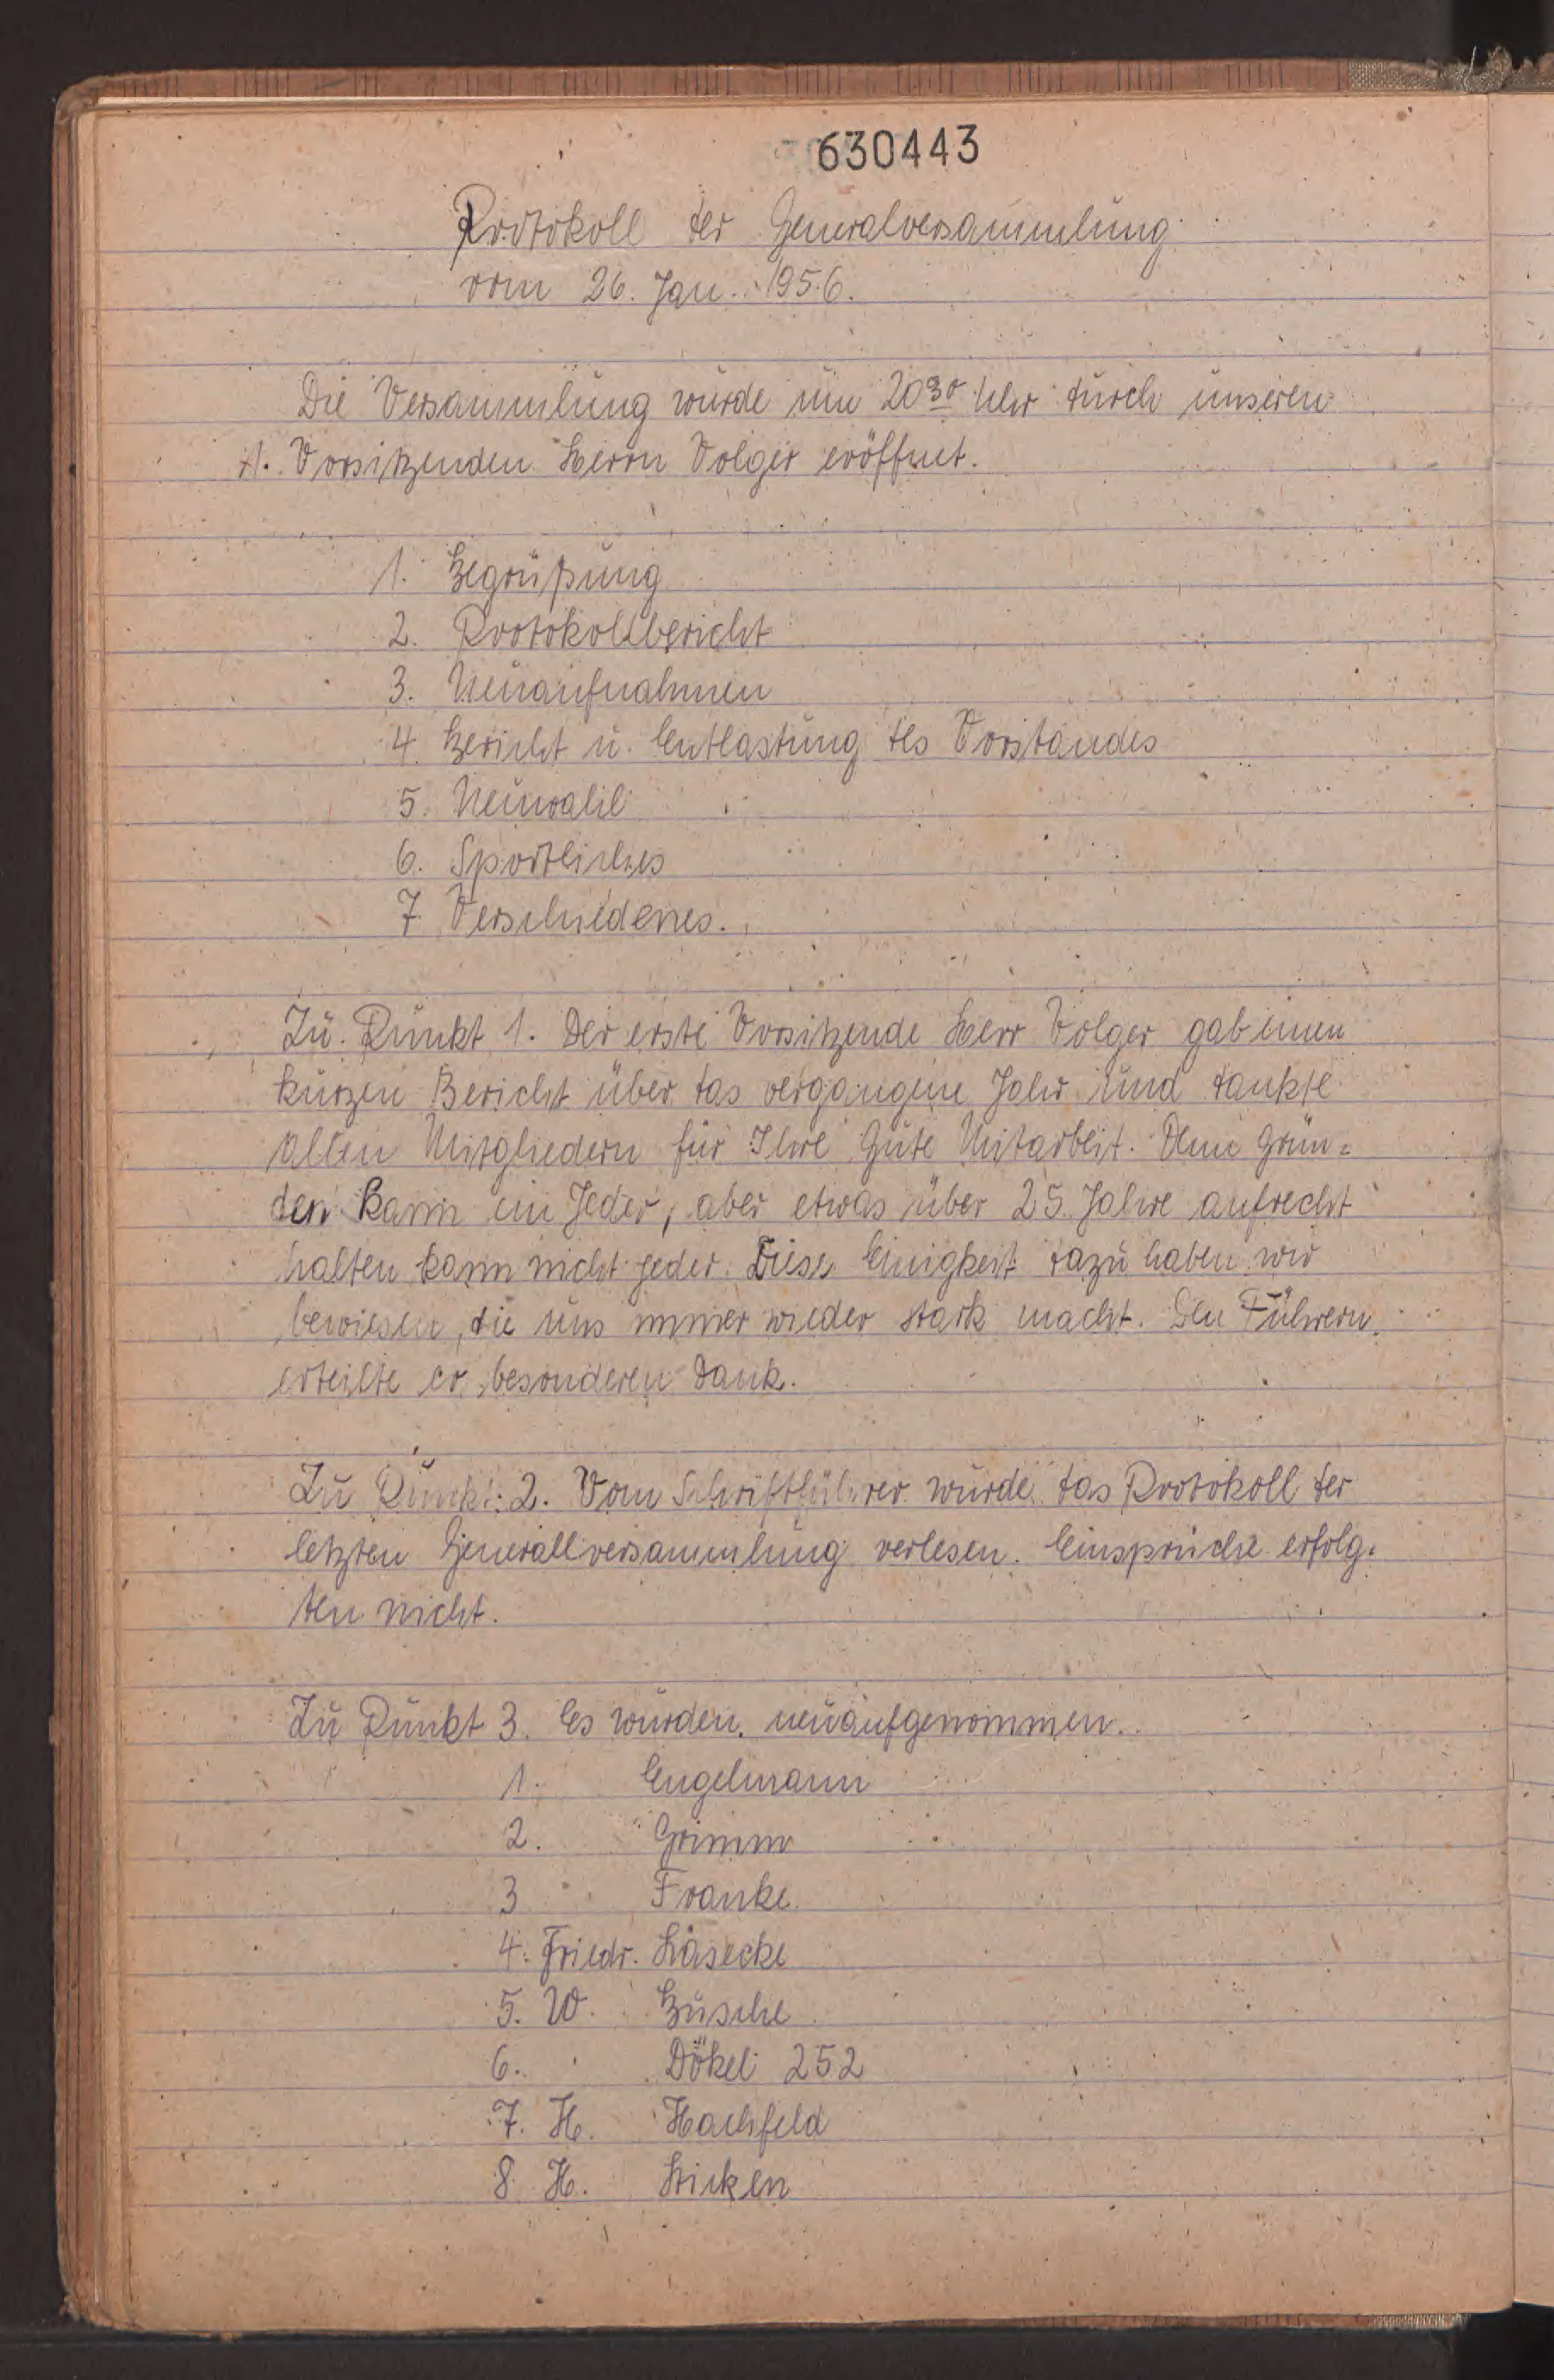 630443
Protokoll der Generalversammlung
vom 26. Jan. 1956.
Die Versammlung wurde um 20³⁰ Uhr durch unseren
1. Vorsitzenden Herrn Volger eröffnet.
1. Begrüßung
2. Protokollbericht
3. Neuaufnahmen
4. Bericht u. Entlastung des Vorstandes
5. Neuwahl
6. Sportliches
7 Verschiedenes.
Zu Punkt 1. Der erste Vorsitzende Herr Volger gab einen
kurzen Bericht über das vergangene Jahr und dankte
allen Mitgliedern für Ihre gute Mitarbeit. Denn Grün=
den kann ein Jeder, aber etwas über 25 Jahre aufrecht
halten kann nicht jeder. Diese Einigkeit dazu haben wir
bewiesen, die uns immer wieder stark macht. Den Führern
erteilte er besonderen Dank.
Zu Punkt: 2. Vom Schriftführer wurde das Protokoll der
letzten Generallversammlung verlesen. Einsprüche erfolg=
ten nicht.
Zu Punkt 3. Es wurden neuaufgenommen.
1. Engelmann
2. Grimm
3 Franke
4. Friedr. Läsecke
5. W. Busche
6. Dökel 252
7. H. Hachfeld
8 H. Sticken